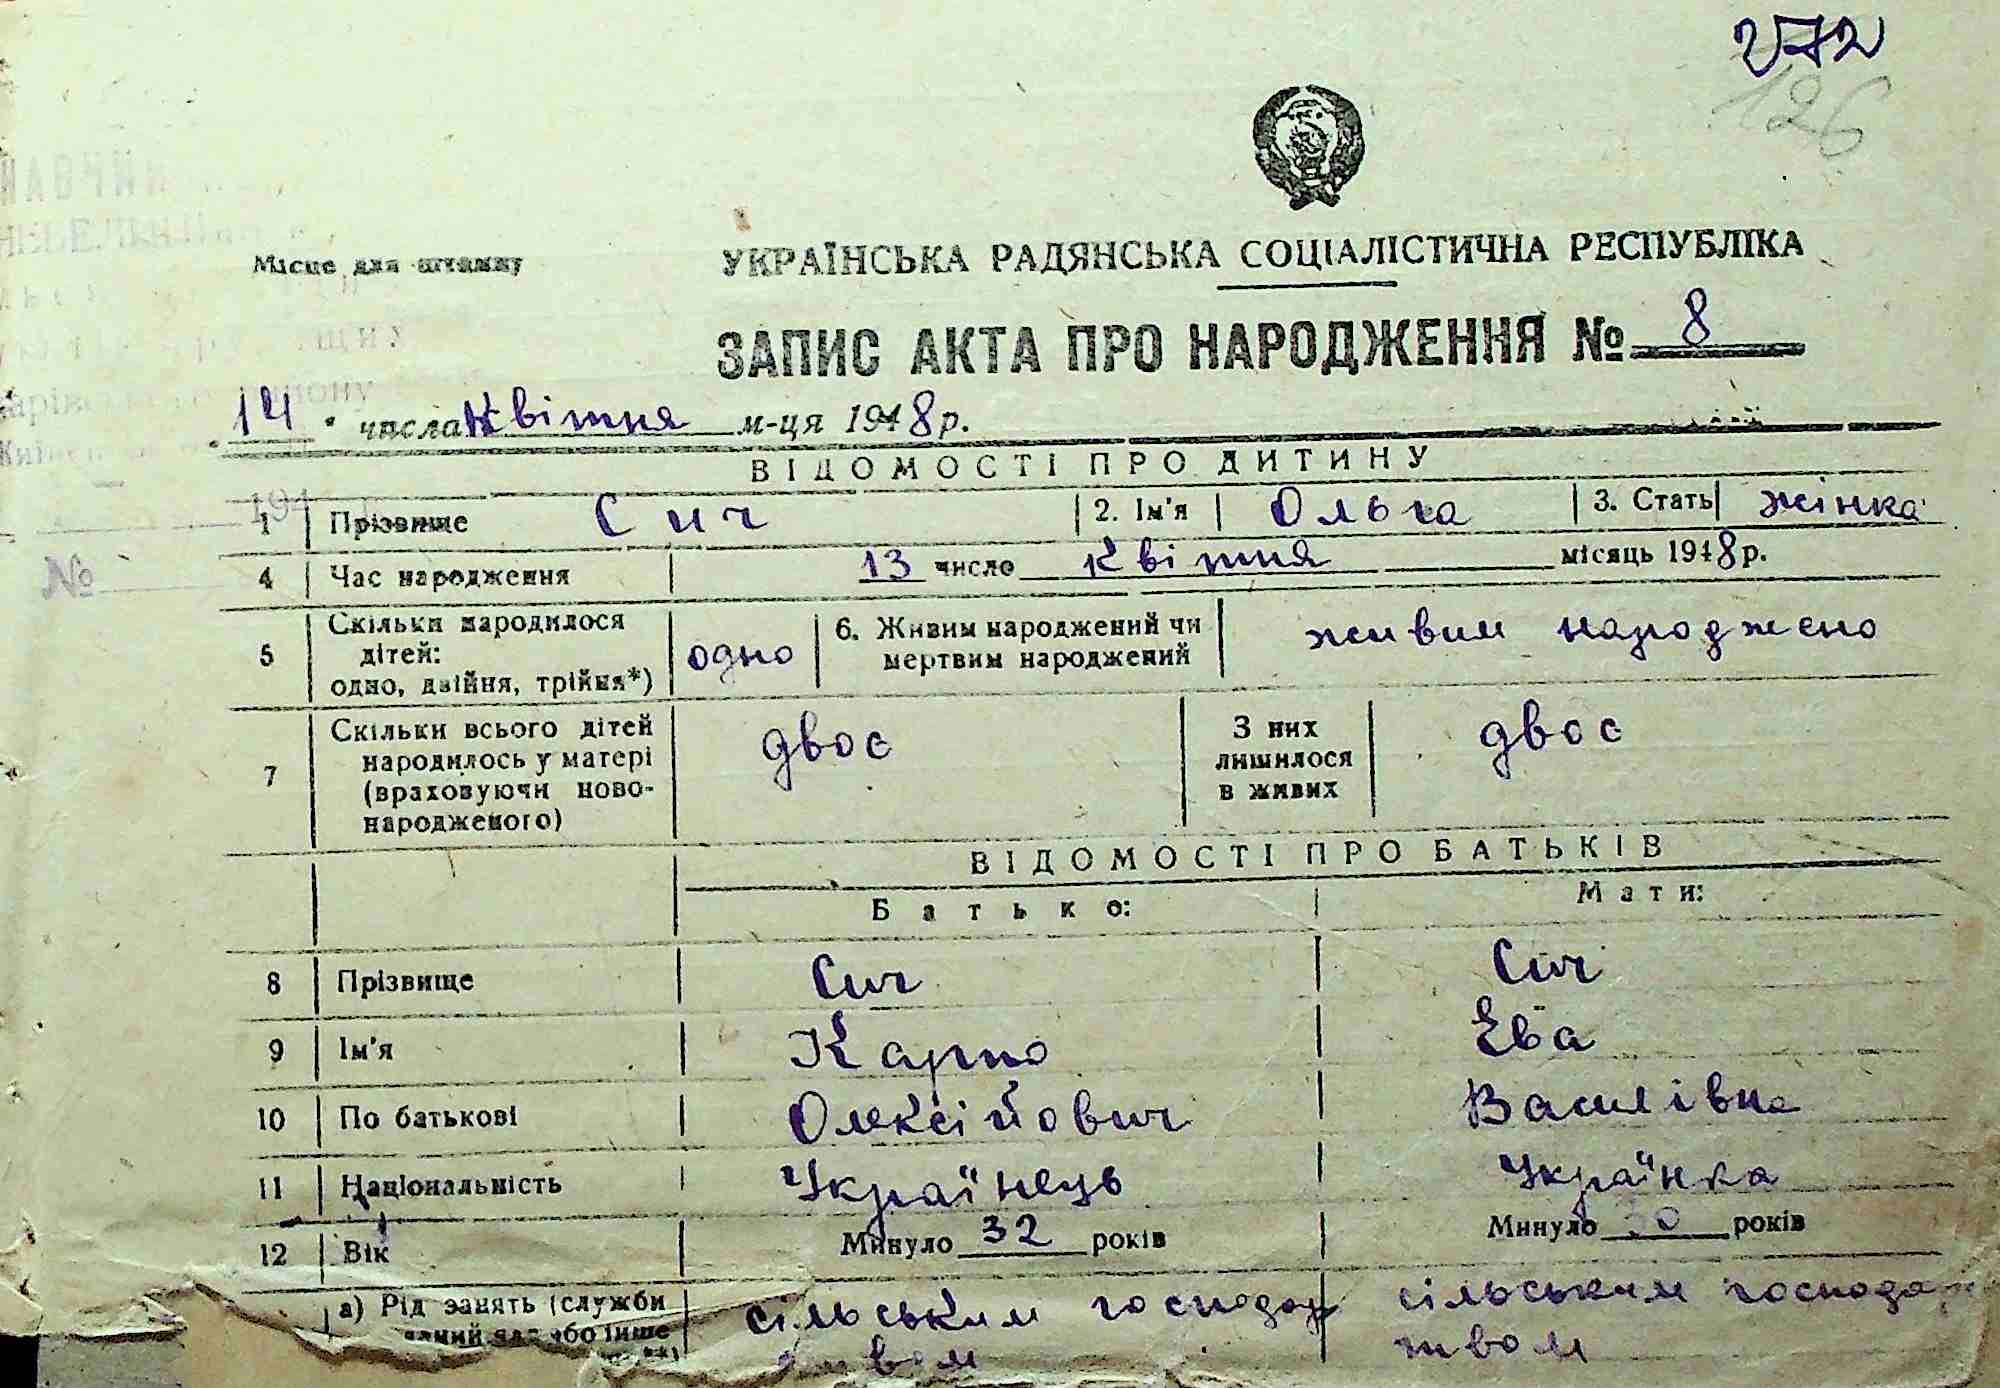 272
126
Місце для штампу
УКРАЇНСЬКА РАДЯНСЬКА СОЦІАЛІСТИЧНА РЕСПУБЛІКА
ЗАПИС АКТА ПРО НАРОДЖЕННЯ № 8
14 числа Квітня м-ця 1948 р.
ВІДОМОСТІ ПРО ДИТИНУ
194
1 Прізвище Сич 2. Ім'я Ольга 3. Стать жінка
№
4 Час народження 13 число квітня місяць 1948 р.
5 Скільки народилося дітей: одно, двійня, трійня*) одно 6. Живим народжений чи мертвим народжений живим народжено
7 Скільки всього дітей народилось у матері (враховуючи ново-народженого) двоє З них лишилося в живих двоє
ВІДОМОСТІ ПРО БАТЬКІВ
Батько: Мати:
8 Прізвище Сич Сич
9 Ім'я Карпо Ева
10 По батькові Олексійович Василівна
11 Національність Українець Українка
12 Вік Минуло 32 років Минуло 30 років
а) Рід занять (служби сільським господар сільським господар
або інше твом